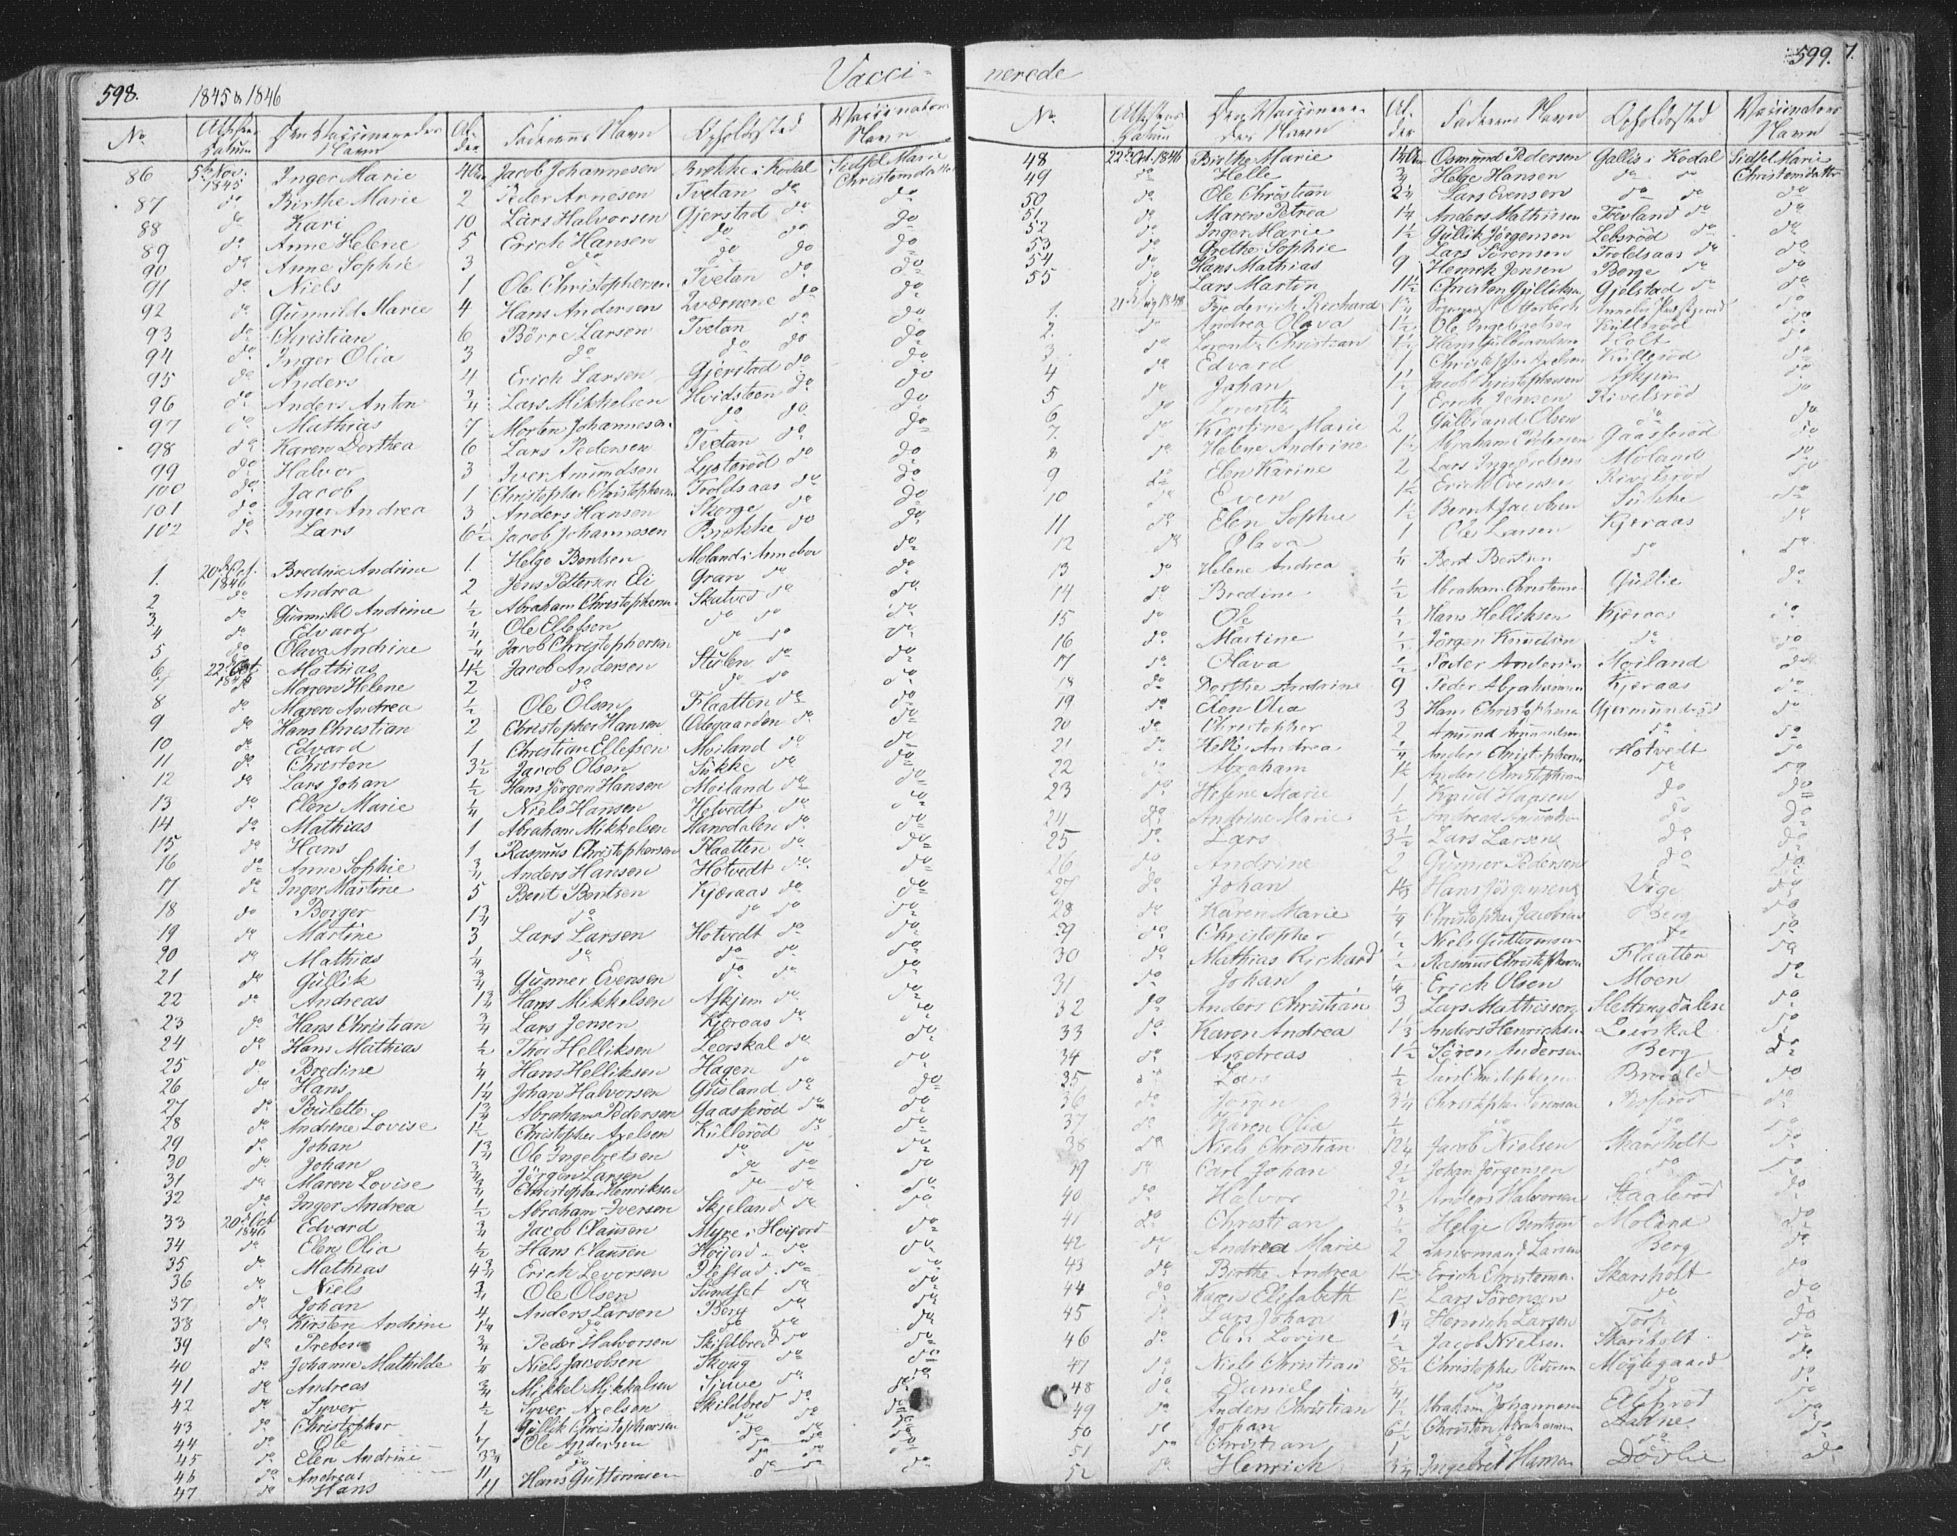 598. 1845 & 1846 Vacci-
No. Attestens Datum Den Vaccineredes Navn Alder Faderens Navn Opholdsted Vaccinators Navn
86 5te Nov. 1845 Inger Marie 4 Aar Jacob Johannesen Brekke i Kodal Sidsel Marie Christensdatter
87 do Birthe Marie 2 Peder Arnesen Tvetan do do
88 do Kari 10 Lars Halvorsen Gjerstad do do
89 do Anne Helene 5 Erich Hansen do do do
90 do Anne Sophie 3 do do do do
91 do Niels 1 Ole Christophersen Tvetan do do
92 do Gunnild Marie 4 Hans Andersen Qværnene do do
93 do Christian 6 Börre Larsen Tvetan do do
94 do Inger Olia 3 do do do do
95 do Anders 4 Erich Larsen Gjerstad do do
96 do Anders Anton 3/4 Lars Mikkelsen Hvidsteen do do
97 do Mathias 7 Morten Johannesen do do do
98 do Karen Dorthea 6 Lars Pedersen Tvetan do do
99 do Halvor 3 Iver Amundsen do do
100 do Jacob 1 Christopher Christophersen Troldsaas do do
101 do Inger Andrea 3 Anders Hansen Skorge do do
102 do Lars 6½ Jacob Johannesen Brekke do do
1. 20de Oct. 1846 Bredine Andrine 1. Helge Bentsen Moland i Annebu do
2 do Andrea 2 Jens Pettersen Eli Gran do do
3. do Gunnild Andrine ½ Abraham Christophersen Skatved do do
4 do Edvard ¼ Ole Ellefsen do do do
5 do Olava Andrine ¼ Jacob Christophersen do do do
6 22de Oct. Mathias 4½ Jacob Andersen Stulen do do
7 do Maren Helene 2 do do do do
8 do Maren Andrea ½ Ole Olsen Flaatten do do
9 do Hans Christian 2 Christopher Hansen Ödegaarden do do
10 do Edvard 1 Christian Ellefsen Moiland do do
11 do Christen 3½ Jacob Olsen Sukke do do
12 do Lars Johan ½ Hans Jörgen Hansen Moiland do do
13 do Elen Marie ¼ Niels Hansen Hotvedt do do
14 do Mathias 1 Abraham Mikkelsen Hansdalen do do
15 do Hans 1 Rasmus Christophersen Flaatten do do
16 do Anne Sophie 3/4 Anders Hansen Hotvedt do do
17 do Inger Martine 5 Bent Bentsen Kjæraas do do
18 do Borger 1¾ do do do do
19 do Martine 3 Lars Larsen Hotvedt do do
20 do Mathias ¼ do do do do
21 do Gullik 3/4 Gunner Evensen do do do
22 do Andreas 1¾ Hans Mikkelsen Askjem do do
23 do Hans Christian 3/4 Lars Jensen Kjæraas do do
24 do Hans Mathias ½ Thor Helliksen Leerskal do do
25 do Bredine ¼ Hans Helliksen Hagen do do
26 do Hans 1¼ Johan Halvorsen Gusland do do
27 do Boulette 1¾ Abraham Pedersen Gaasserød do do
28 do Andrine Lovise 1½ Christopher Axelsen Kullerød do do
29 do Johan 1¾ Ole Ingebretsen do do do
30 do Johan 3/4 Jörgen Larsen do do do
31 do Maren Lovise 3/4 Christopher Henriksen do do do
32 do Inger Andrea ½ Abraham Iversen Skjeland do do
33 20de Oct 1846 Edvard 3/4 Jacob Clausen Myre i Höijord do
34 do Elen Olia ½ Hans Clausen Höijord do do
35 do Mathias 4¾ Erich Levorsen Ilestad do do
36 do Niels 3/4 Ole Olsen Sundset do do
37 do Johan 4 Anders Larsen Berg do do
38 do Kirsten Andrine 1¼ do do do do
39 do Preben 3/4 Peder Halvorsen Skildbred do do
40 do Johanne Mathilde ¼ Niels Jacobsen Skoug do do
41 do Andreas 3/4 Mikkel Mikkelsen Sjuve do do
42 do Syver ½ Syver Axelsen Skildbred do do
43 do Christopher 1 Gullik Christophersen do do do
44 do Ole ¼ Ole Andersen do do do
45 do Elen Andrine 3¾ do do do do
46 do Andreas 11 Hans Guttormsen do do do
47 do Hans 11
nerede 599. 7.
No. Attestens Datum Den Vaccineredes Navn Alder Faderens Navn Opholdsted Vaccinators Navn
48 22de Oct. 1846 Birthe Marie Osmund Pedersen Gallis i Kodal Sidsel Marie Christensdatter
49 do Helle 3/4 Helge Hansen do do
50 do Ole Christian 2¼ Lars Evensen do do do
51. do Maren Petrea 1¼ Anders Mathisen Trevland do do
52 do Inger Marie 1½ Gullik Jörgensen Lebsröd do do
53 do Grethe Sophie 1 Lars Sörensen Troldsaas do do
54 do Hans Mathias 9 Henrik Jensen Berge do do
55 do Lars Martin 11½ Christen Gulliksen Gjelstad do do
1. 1848 Frederich Richard 1¼ do
2. do Andrea Olava 1½ Ole Ingebretsen Kullerød do
3 do Lorentz Christian 1½ Hans Gulbrandsen Holt do
4 do Edvard 1 Christopher Axelsen Kullerød do
5 do Johan 1½ Jacob Christophersen Askjem do
6 do Lorentz 1 Erich Jensen Rivelsrød
7. do Kirstine Marie 2 Gulbrand Olsen do do
8 do Helene Andrine 1½ Abraham Pedersen Gaasserød do
9 do Elen Karine 2 Lars Ingebretsen Moland do
10 do Even 1½ Erich Evensen Rivelsrød do
11 do Elen Sophie 1½ Bernt Jacobsen Sukke do
12 do Olava 1 Ole Larsen Kjæraas do
13 do Helene Andrea ¼ Bent Bentsen do do
14 do Bredine ½ Abraham Christensen Gullie do
15 do Ole ½ Hans Helliksen Kjæraas do
16 do Martine ½ Jörgen Knudsen do do
17 do Olava ½ Peder Andersen Moiland do
18 do Dorthe Andrine 9 Peder Abrahamsen Kjæraas do
19 do Elen Olia 3 Hans Christophersen Gjermundrød do
20 do Christopher 2 Amund Amundsen do do
21 do Helle Andrea ¼ Anders Christophersen Hotvedt do
22 do Abraham 1½ Anders Christophersen do do
23 do Helene Marie 1 Knud Hansen do do
24 do Andrine Marie ½ do do
25 do Lars 3½ Lars Larsen do do
26 do Andrine 2 Gunner Pedersen do do
27 do Johan Hans Jörgensen Vige do
28 do Karen Marie ¼ Christopher Jacobsen Berg do
29 do Christopher ½ Niels Guttormsen do do
30 do Mathias Richard ½ Rasmus Christophersen Flaatten do
31 do Johan ¼ Erich Olsen Moen do
32 do Anders Christian 3 Lars Mathisen Slettingdalen do
33 do Karen Andrea 1⅓ Anders Henrichsen Leerskal do
34 do Andreas 1½ Sören Andersen Berg do
35 do Lars ½ Lars Christophersen do
36 do Jörgen 3¼ Christopher Sörensen do
37 do Karen Olia ½ do do do
38 do Niels Christian 12¼ Jacob Nielsen Skarsholt do
39 do Carl Johan 2½ Johan Jörgensen do do
40 do Halvor 2½ Anders Halvorsen Haalerød do
41 do Christian ½ Helge Bentsen Moland do
42 do Andrea Marie 2 Larsen Berg do
43 do Birthe Andrea 1½ Erich Christensen Skarsholt do
44 do Karen Elisabeth Lars Sörensen do do
45 do Lars Johan 1¼ Henrich Larsen Torp do
46 do Elen Lovise ½ Jacob Nielsen Skarsholt do
47 do Niels Christian 8½ Christopher Pedersen Möglegaard do
48 do Daniel ¼ do do do
49 do Anders Christian 1½ Abraham Johannesen do
50 do Johan 6½ Christen Abrahamsen do
51 do Christian 1 do do do
52 do Henrich 3¼ Ingebret Hansen Dövlie do